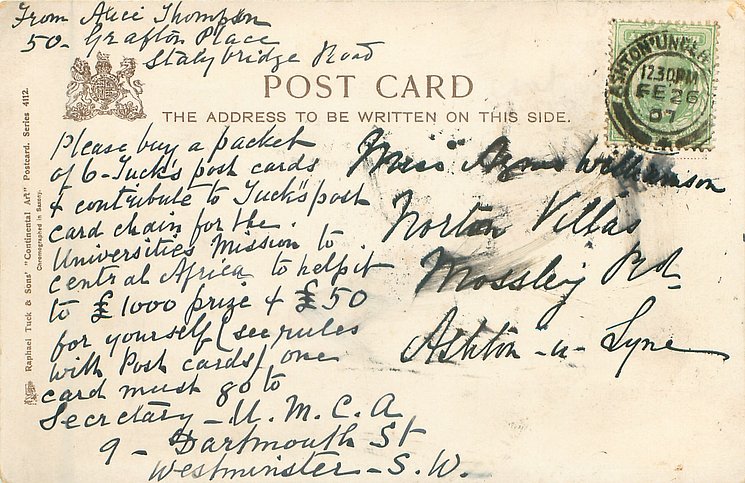 From Alice Thompson
50 - Grafton Place
Stalybridge Road
POST CARD
THE ADDRESS TO BE WRITTEN ON THIS SIDE.
Raphael Tuck & Sons' "Continental Art" Postcard. Series 4112.
Chromographed in Saxony.
ASHTON UNDER
12.30PM
FE 26
07
Please buy a packet
of 6 - Tuck's post cards
& contribute to Tuck's post
card chain for the
Universities Mission to
Central Africa to help it
to £1000 prize & £50
for yourself (see rules
with Post cards) one
card must go to
Secretary - U.M.C.A
9 - Dartmouth St
Westminster - S.W.
Miss Williamson
Norton Villas
Mossley Rd
Ashton -u- Lyne